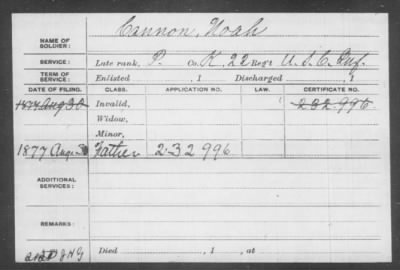 NAME OF SOLDIER: Cannon, Noah
SERVICE: Late rank, P. Co. K, 22 Reg't U.S.C. Inf.
TERM OF SERVICE: Enlisted , 1 Discharged , 1
DATE OF FILING. CLASS. APPLICATION NO. LAW. CERTIFICATE NO.
1877 Aug 30 Invalid, 232 996
Widow,
Minor,
1877 Aug. 30 Father 232 996
ADDITIONAL SERVICES:
REMARKS:
Died , 1 , at